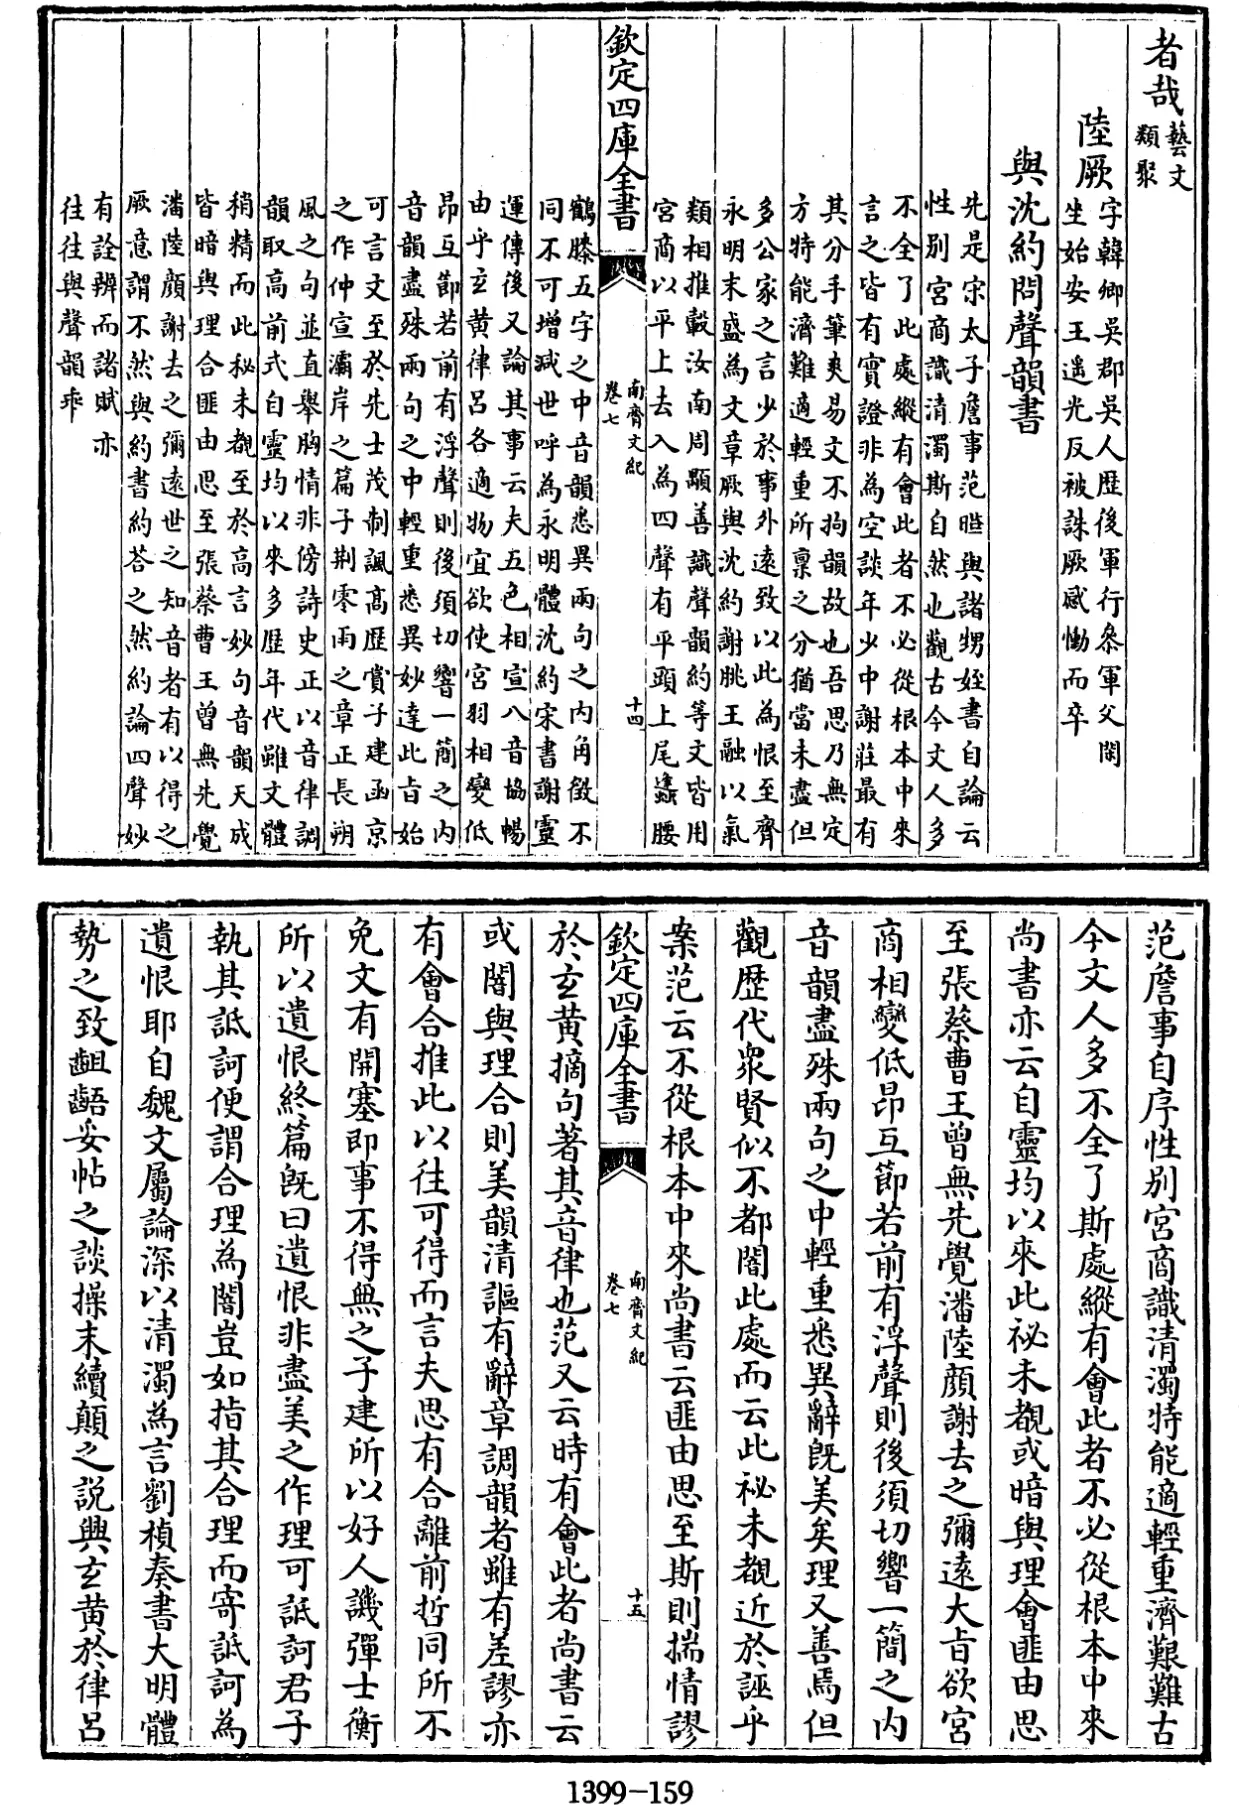 者哉藝文
類聚
陸厥字韓卿吳郡吳人歴後軍行叅軍父閑
坐始安王遥光反被誅厥感慟而卒
與沈約問聲韻書
先是宋太子詹事范曄與諸甥姪書自論云
性别宫商識清濁斯自然也觀古今文人多
不全了此處縱有會此者不必從根本中來
言之皆有實證非為空談年少中謝莊最有
其分手筆爽易文不拘韻故也吾思乃無定
方特能濟難適輕重所禀之分猶當未盡但
多公家之言少於事外逺致以此為恨至齊
永明末盛為文章厥與沈約謝朓王融以氣
類相推轂汝南周顒善識聲韻約等文皆用
宫商以平上去入為四聲有平頭上尾蠭腰
欽定四庫全書
南齊文紀
卷七
十四
鶴膝五字之中音韻悉異兩句之内角徵不
同不可増减世呼為永明體沈約宋書謝靈
運傳後又論其事云夫五色相宣八音協暢
由乎𤣥黄律吕各適物宜欲使宫羽相變低
昂互節若前有浮聲則後須切響一簡之内
音韻盡殊兩句之中輕重悉異妙達此㫖始
可言文至於先士茂制諷高歴賞子建函京
之作仲宣灞岸之篇子荆零雨之章正長朔
風之句並直舉胸情非傍詩史正以音律調
韻取高前式自靈均以來多歴年代雖文體
稍精而此秘未覩至於高言妙句音韻天成
皆暗與理合匪由思至張蔡曹王曾無先覺
潘陸顔謝去之彌逺世之知音者有以得之
厥意謂不然與約書約荅之然約論四聲妙
有詮辨而諸賦亦
往往與聲韻乖
范詹事自序性别宫商識清濁特能適輕重濟艱難古
今文人多不全了斯處縱有會此者不必從根本中來
尚書亦云自靈均以來此祕未覩或暗與理會匪由思
至張蔡曹王曾無先覺潘陸顔謝去之彌逺大㫖欲宫
商相變低昂互節若前有浮聲則後須切響一簡之内
音韻盡殊兩句之中輕重悉異辭旣美矣理又善焉但
觀歴代衆賢似不都闇此處而云此祕未覩近於誣乎
案范云不從根本中來尚書云匪由思至斯則揣情謬
欽定四庫全書
南齊文紀
卷七
十五
於𤣥黄摘句著其音律也范又云時有會此者尚書云
或闇與理合則美韻清謳有辭章調韻者雖有差謬亦
有會合推此以往可得而言夫思有合離前哲同所不
免文有開塞即事不得無之子建所以好人譏彈士衡
所以遺恨終篇旣曰遺恨非盡美之作理可詆訶君子
執其詆訶便謂合理為闇豈如指其合理而寄詆訶為
遺恨耶自魏文屬論深以清濁為言劉楨奏書大明體
勢之致齟齬妥帖之談操末續顛之說興𤣥黄於律吕
1399-159